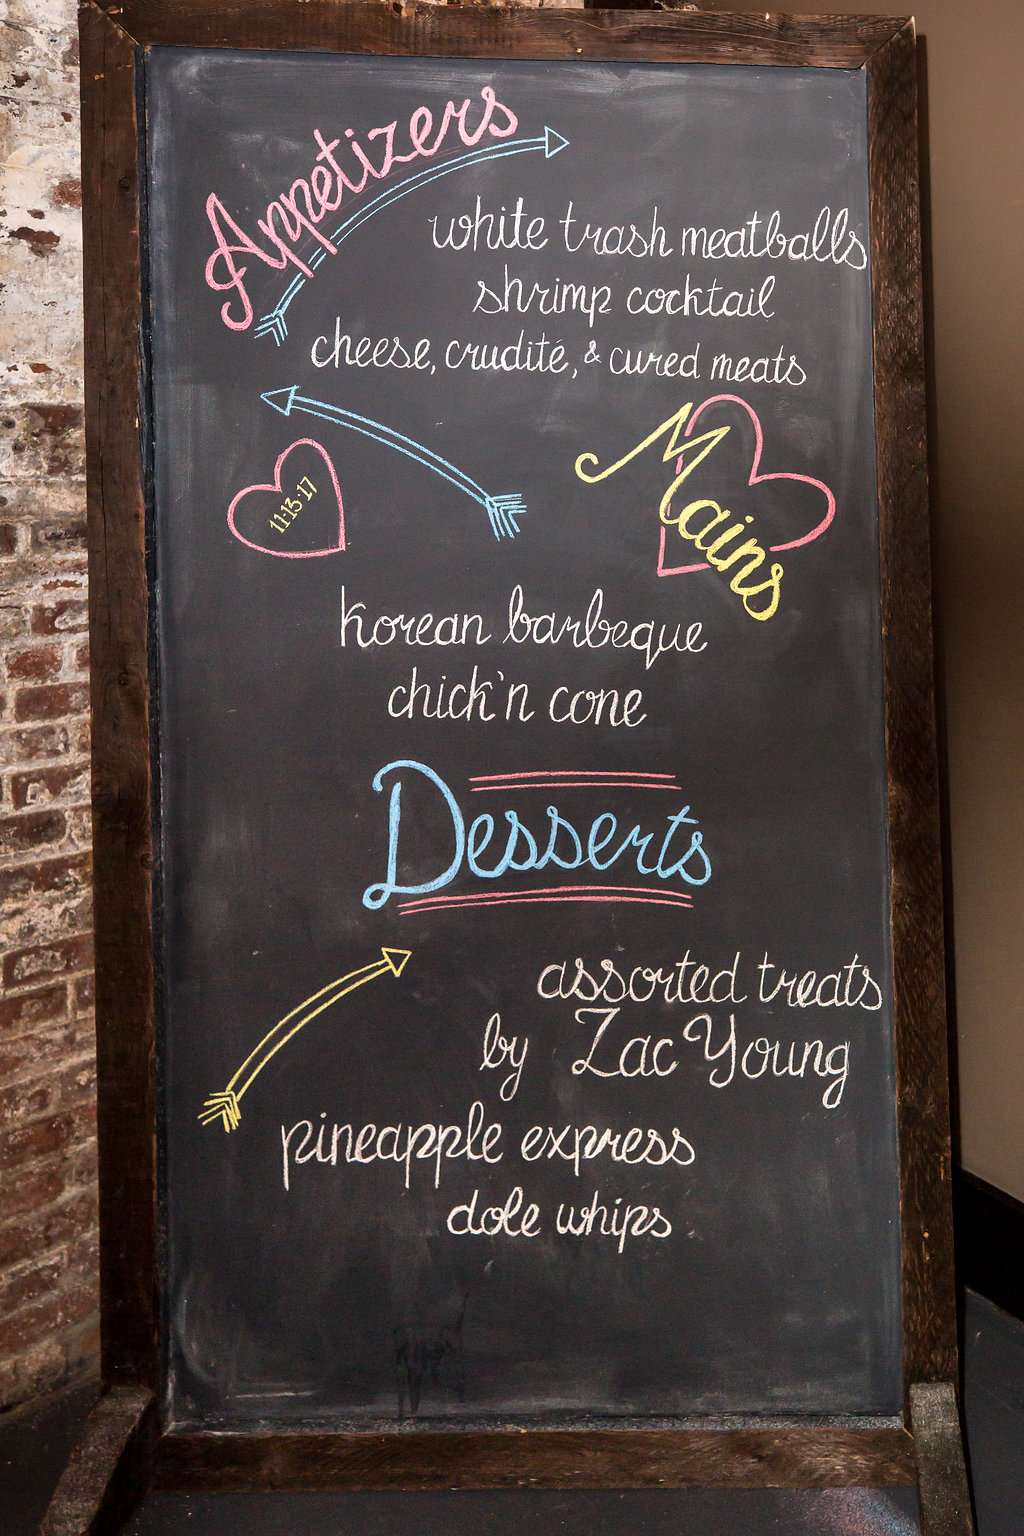 Appetizers
white trash meatballs
shrimp cocktail
cheese, crudité, & cured meats
11·13·17
Mains
korean barbeque
chick'n cone
Desserts
assorted treats
by Zac Young
pineapple express
dole whips